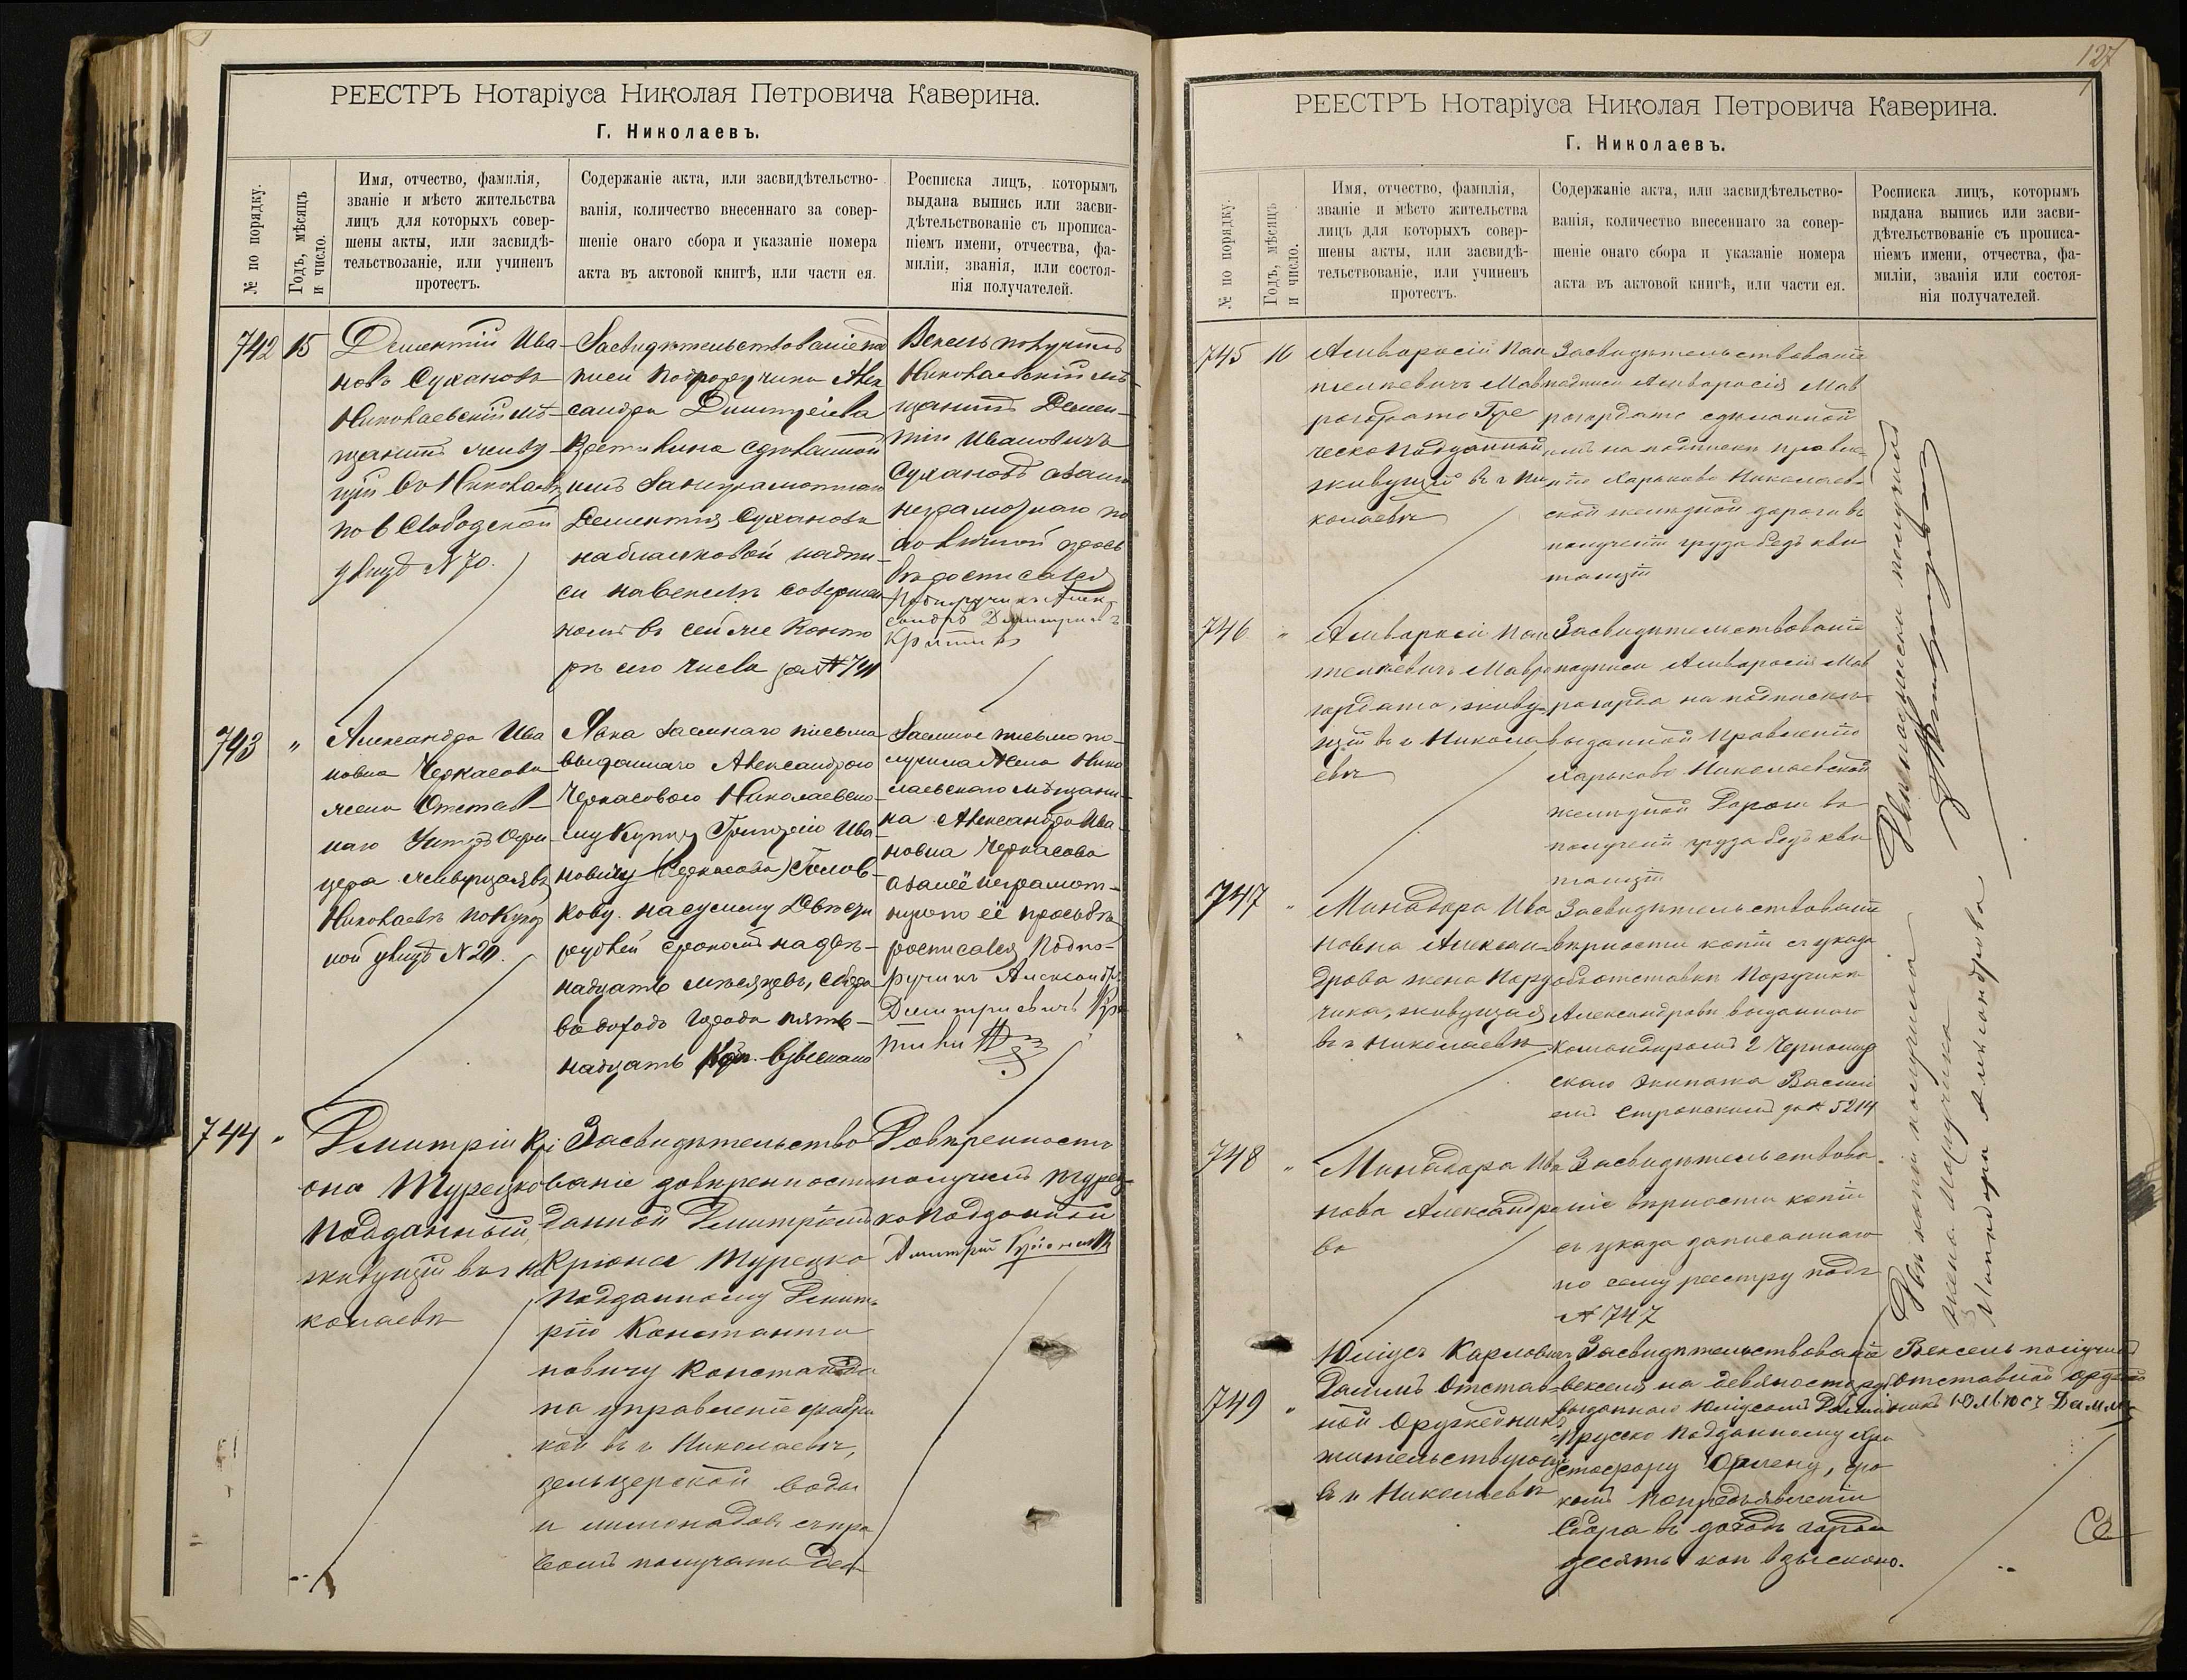 РЕЕСТРЪ Нотаріуса Николая Петровича Каверина.
Г. Николаевъ.
№ по порядку.
Годъ, мѣсяцъ
и число.
Имя, отчество, фамилія,
званіе и мѣсто жительства
лицъ для которыхъ совер-
шены акты, или засвидѣ-
тельствованіе, или учиненъ
протестъ.
Содержаніе акта, или засвидѣтельство-
ванія, количество внесеннаго за совер-
шеніе онаго сбора и указаніе номера
акта въ актовой книгѣ, или части ея.
Росписка лицъ, которымъ
выдана выпись или засви-
дѣтельствованіе съ прописа-
ніемъ имени, отчества, фа-
миліи, званія, или состоя-
нія получателей.
742
15
Дементій Ива-
новъ Сухановъ
Николаевскій мѣ-
щанинъ живу-
щій въ Николаевѣ
по 6 Слободской
улицѣ N 70.
Засвидѣтельствованіе под
писи Подпоручика Алек
сандра Дмитріева
сдѣланной
имъ за неграмотнаго
Дементія Суханова
на бланковой надпи-
си на векселѣ совершен
номъ въ сей же конто
рѣ сего числа за № 741
Вексель получилъ
Николаевскій мѣ-
щанинъ Демен-
тій Ивановичъ
Сухановъ а за его
неграмотнаго по
его личной прось
бѣ росписался
Подпоручикъ Алек
сандръ Дмитріевъ
743
"
Александра Ива
новна Черкасова
жена Отстав-
наго Унтеръ Офи
цера живущая въ
Николаевѣ по Кузнеч
ной улицѣ N 20.
Явка заемнаго письма
выданнаго Александрою
Черкасовою Николаевско-
му Купцу Григорію Ива-
новичу (Черкасова) Голов-
кову на сумму Двѣсти
рублей срокомъ на двѣ-
надцать мѣсяцевъ, сбора
въ доходъ города пять-
надцать коп. взыскано
Заемное письмо по-
лучила жена Нико
лаевскаго мѣщани-
на Александра Ива-
новна Черкасова
а за неё неграмот-
ную по её просьбѣ
росписался Подпо-
ручикъ Александръ
Дмитріевичъ
744
"
Дмитрій Крі
она Турецко
подданный,
живущій въ г Ни
колаевѣ
Засвидѣтельство
ваніе довѣренности
данной Дмитріемъ
Кріона Турецко
подданному Дмит-
рію Константи
новичу Константиди
на управленіе фабри
кой въ г Николаевѣ,
зельцерской воды
и лимонадовъ съ пра
вомъ получать ден
Довѣренность
получилъ Турец-
ко подданный
Дмитрій
127
РЕЕСТРЪ Нотаріуса Николая Петровича Каверина.
Г. Николаевъ.
№ по порядку.
Годъ, мѣсяцъ
и число.
Имя, отчество, фамилія,
званіе и мѣсто жительства
лицъ для которыхъ совер-
шены акты, или засвидѣ-
тельствованіе, или учиненъ
протестъ.
Содержаніе акта, или засвидѣтельство-
ванія, количество внесеннаго за совер-
шеніе онаго сбора и указаніе номера
акта въ актовой книгѣ, или части ея.
Росписка лицъ, которымъ
выдана выпись или засви-
дѣтельствованіе съ прописа-
ніемъ имени, отчества, фа-
миліи, званія или состоя-
нія получателей.
745
16
Амвросій Пан
телѣевичъ Мав
рогордато Гре
ческо подданный
живущій въ г Ни
колаевѣ
Засвидѣтельствованіе
подписи Амвросія Мав
рогордато сдѣланной
имъ на подпискѣ правле-
нію Харьково Николаев-
ской желѣзной дороги въ
полученіи груза безъ кви
танціи
746
"
Амвросій Пан
телѣевичъ Мавро
гордато, живу-
щій въ г Никола
евѣ
Засвидѣтельствованіе
подписи Амвросія Мав
рогорда на подпискѣ
выданной Правленію
Харьково Николаевской
желѣзной Дороги въ
полученіи груза безъ кви
танціи
Двѣ подписки получилъ
747
"
Минадора Ива
новна Алексан-
дрова жена Пору
чика, живущая
въ г Николаевѣ
Засвидѣтельствованіе
вѣрности копіи съ указа
объ отставкѣ Поручика
Александрова выданнаго
Командиромъ 2 Черномор
скаго Экипажа
за № 5214
748
"
Минадора Ива
нова Александро
ва
Засвидѣтельствова-
ніе вѣрности копіи
съ указа записаннаго
по сему реестру подъ
№ 747
Двѣ копіи получила
жена Поручика
Минадора Александрова
749
"
Юліусъ Карловичъ
Даммъ Отстав-
ной Оружейникъ
жительствующій
въ г Николаевѣ
Засвидѣтельствованіе
векселя на девяносто руб
выданнаго Юліусомъ Даммъ
Прусско подданному Хри
стофору сро
комъ по предъявленіи
Сбора въ доходъ города
десять коп взыскано.
Вексель получилъ
отставной оружей
никъ Юльюсъ Даммъ